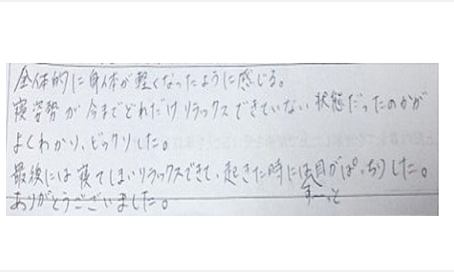 全体的に身体が軽くなったように感じる。
寝姿勢が今までどれだけリラックスできていない状態だったのかが
よくわかり、ビックリした。
最後には寝てしまいリラックスできて、起きた時には目がぱっちりした。
すーっと
ありがとうございました。